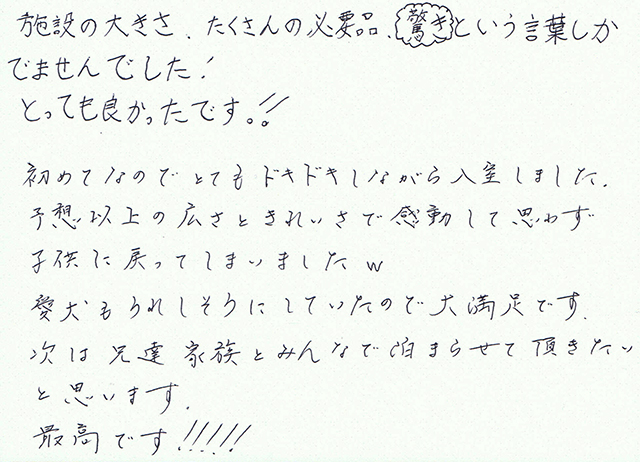 施設の大きさ、たくさんの必要品、驚きという言葉しか
でませんでした！
とっても良かったです。!!
初めてなのでとてもドキドキしながら入室しました。
予想以上の広さときれいさで感動して思わず
子供に戻ってしまいましたw
愛犬もうれしそうにしていたので大満足です。
次は兄達家族とみんなで泊まらせて頂きたい
と思います。
最高です!!!!!!